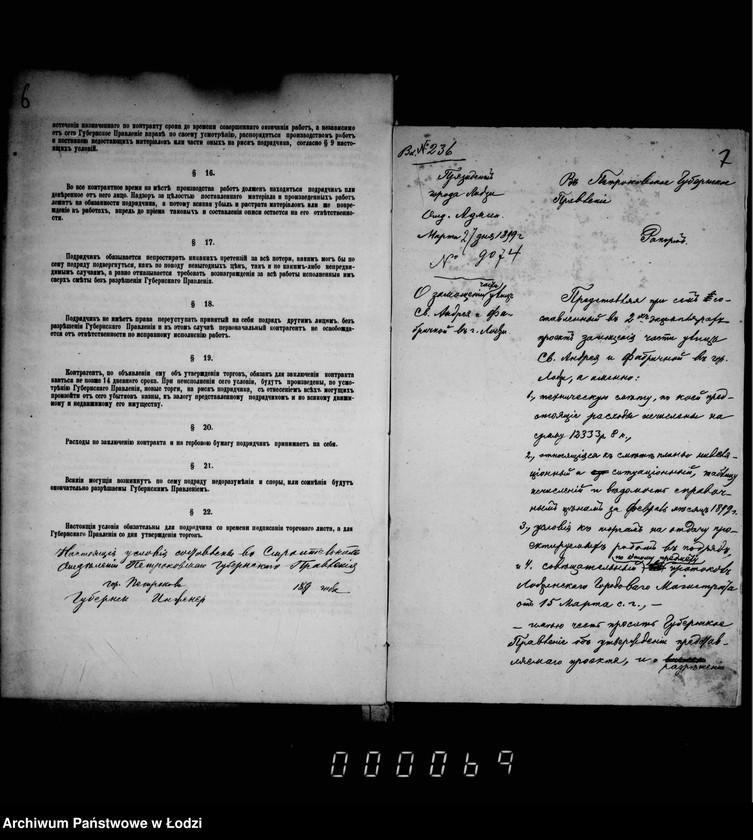 6
истеченія назначеннаго по контракту срока до времени совершеннаго окончанія работъ, а независимо
отъ сего Губернское Правленіе вправѣ по своему усмотрѣнію, распорядиться производствомъ работъ
и поставкою недостающихъ матеріаловъ или части оныхъ на рискъ подрядчика, согласно § 9 насто-
ящихъ условій.
§ 16.
Во все контрактное время на мѣстѣ производства работъ долженъ находиться подрядчикъ или
довѣренное отъ него лицо. Надзоръ за цѣлостью поставленнаго матеріала и произведенныхъ работъ
лежитъ на обязанности подрядчика, а потому всякая убыль и растрата матеріаловъ или же повре-
жденіе въ работахъ, впредь до пріема таковыхъ и составленія описи остается на его отвѣтственно-
сти.
§ 17.
Подрядчикъ обязывается непростирать никакихъ претензій за всѣ потери, какимъ могъ бы по
сему подряду подвергнуться, какъ по поводу невыгодныхъ цѣнъ, такъ и по какимъ-либо непредви-
димымъ случаямъ, а равно отказывается требовать вознагражденія за всѣ работы исполненныя имъ
сверхъ смѣты безъ разрѣшенія Губернскаго Правленія.
§ 18.
Подрядчикъ не имѣетъ права переуступать принятый на себя подрядъ другимъ лицамъ, безъ
разрѣшенія Губернскаго Правленія и въ этомъ случаѣ первоначальный контрагентъ не освобожда-
ется отъ отвѣтственности по исправному исполненію работъ.
§ 19.
Контрагентъ, по объявленіи ему объ утвержденіи торговъ, обязанъ для заключенія контракта
явиться не позже 14 дневнаго срока. При неисполненіи сего условія, будутъ произведены, по усмо-
трѣнію Губернскаго Правленія, новые торги, на рискъ подрядчика, съ отнесеніемъ всѣхъ могущихъ
произойти отъ сего убытковъ казны, къ залогу представленному подрядчикомъ и ко всякому движи-
мому и недвижимому его имуществу.
§ 20.
Расходы по заключенію контракта и на гербовую бумагу подрядчикъ принимаетъ на себя.
§ 21.
Всякія могущія возникнуть по сему подряду недоразумѣнія и споры, или сомнѣнія будутъ
окончательно разрѣшаемы Губернскимъ Правленіемъ.
§ 22.
Настоящія условія обязательны для подрядчика со времени подписанія торговаго листа, а для
Губернскаго Правленія со дня утвержденія торговъ.
Настоящія условія составлены во Строительномъ
Отдѣленіи Петроковскаго Губернскаго Правленія
гор. Петроковъ 189 года
Губернск Инженер
Вх. № 236
7
Президентъ
города Лодзи
Отд. Админ.
Марта 27 дня 1899 г
№ 9074
О замощеніи части улицъ
Св. Андрея и Фа-
бричной въ г. Лодзи.
Въ Петроковское Губернское
Правленіе
Рапортъ.
Представляя при семъ со-
ставленный въ 2хъ экземплярахъ
проектъ замощенія части улицы
Св. Андрея и Фабричной въ гор.
Лодзи, а именно:
1, техническую смѣту, по коей пред-
стоящіе расходы исчислены на
сумму 12333 р. 8 к.,
2, относящіеся къ смѣтѣ планы нивелля-
ціонный и ситуаціонный, таблицу
исчисленій и вѣдомость справоч-
нымъ цѣнамъ за Февраль мѣсяцъ 1899 г.
3, условія къ торгамъ на отдачу про-
эктируемыхъ работъ въ подрядъ,
и 4. совѣщательный по этому предмету протоколъ
Лодзинскаго Городоваго Магистрата
отъ 15 Марта с. г., —
— имѣю честь просить Губернское
Правленіе объ утвержденіи представ-
ляемаго проекта, и о
разрѣшеніи
000069
Archiwum Państwowe w Łodzi